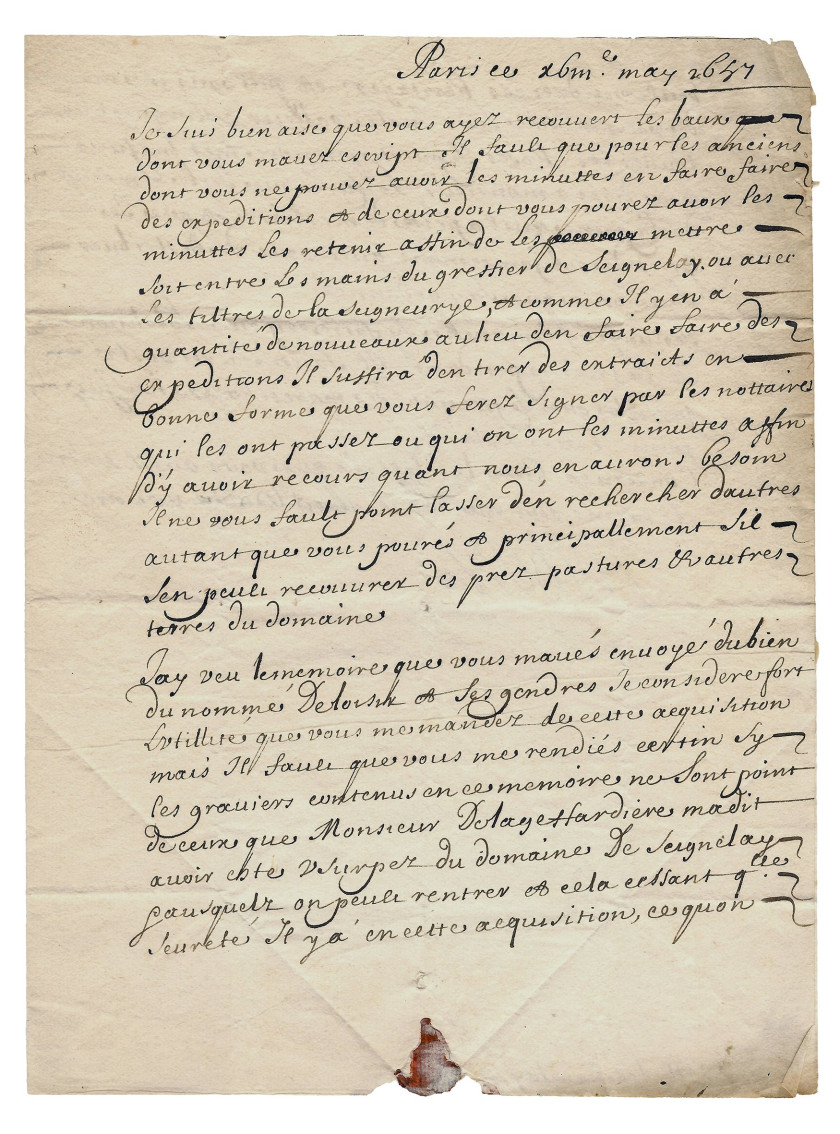 Paris ce 16me. may 1657
Je suis bien aise que vous ayez recouvert les baux
dont vous mavez escript Il fault que pour les anciens
dont vous ne pouvez avoir les minuttes en faire faire
des expeditions & de ceux dont vous pourez avoir les
minuttes les retenir affin de les mettre
soit entre les mains du greffier de Seignelay, ou avec
les tiltres de la Seigneurye, & comme Il y en á
quantité de nouveaux au lieu den faire faire des
expeditions Il suffira den tirer des extraicts en
bonne forme que vous ferez signer par les nottaires
qui les ont passez ou qui on ont les minuttes affin
d'y avoir recours quant nous en aurons besoin
Il ne vous fault point lasser dén rechercher dautres
autant que vous pourés & principallement sil
sen peult recouvrer des prez pastures & autres
terres du domaine
Jay veu le memoire que vous mavés envoyé du bien
du nommé Deloisir & ses gendres Je considere fort
Lutillité que vous me mandez de cette acquisition
mais Il fault que vous me rendiés certin sy
les graviers contenus en ce memoire ne sont point
de ceux que Monsieur Delagehardiere madit
avoir esté usurpez du domaine De Seignelay
gausquelz on peult rentrer & cela cessant qlle
seureté Il y á en cette acquisition, ce quon